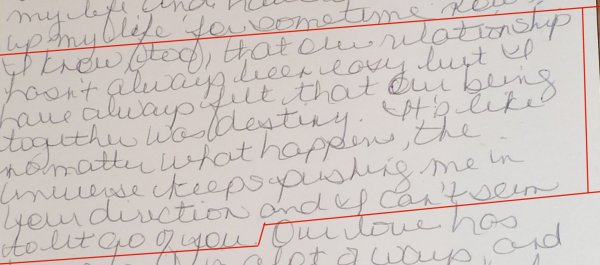 my life and
up my life for sometime now
I know (too), that our relationship
hasn't always been easy but I
have always felt that our being
together was destiny. It's like
no matter what happens, the
universe keeps pushing me in
your direction and I can't seem
to let go of you. Our love has
a lot of ways, and